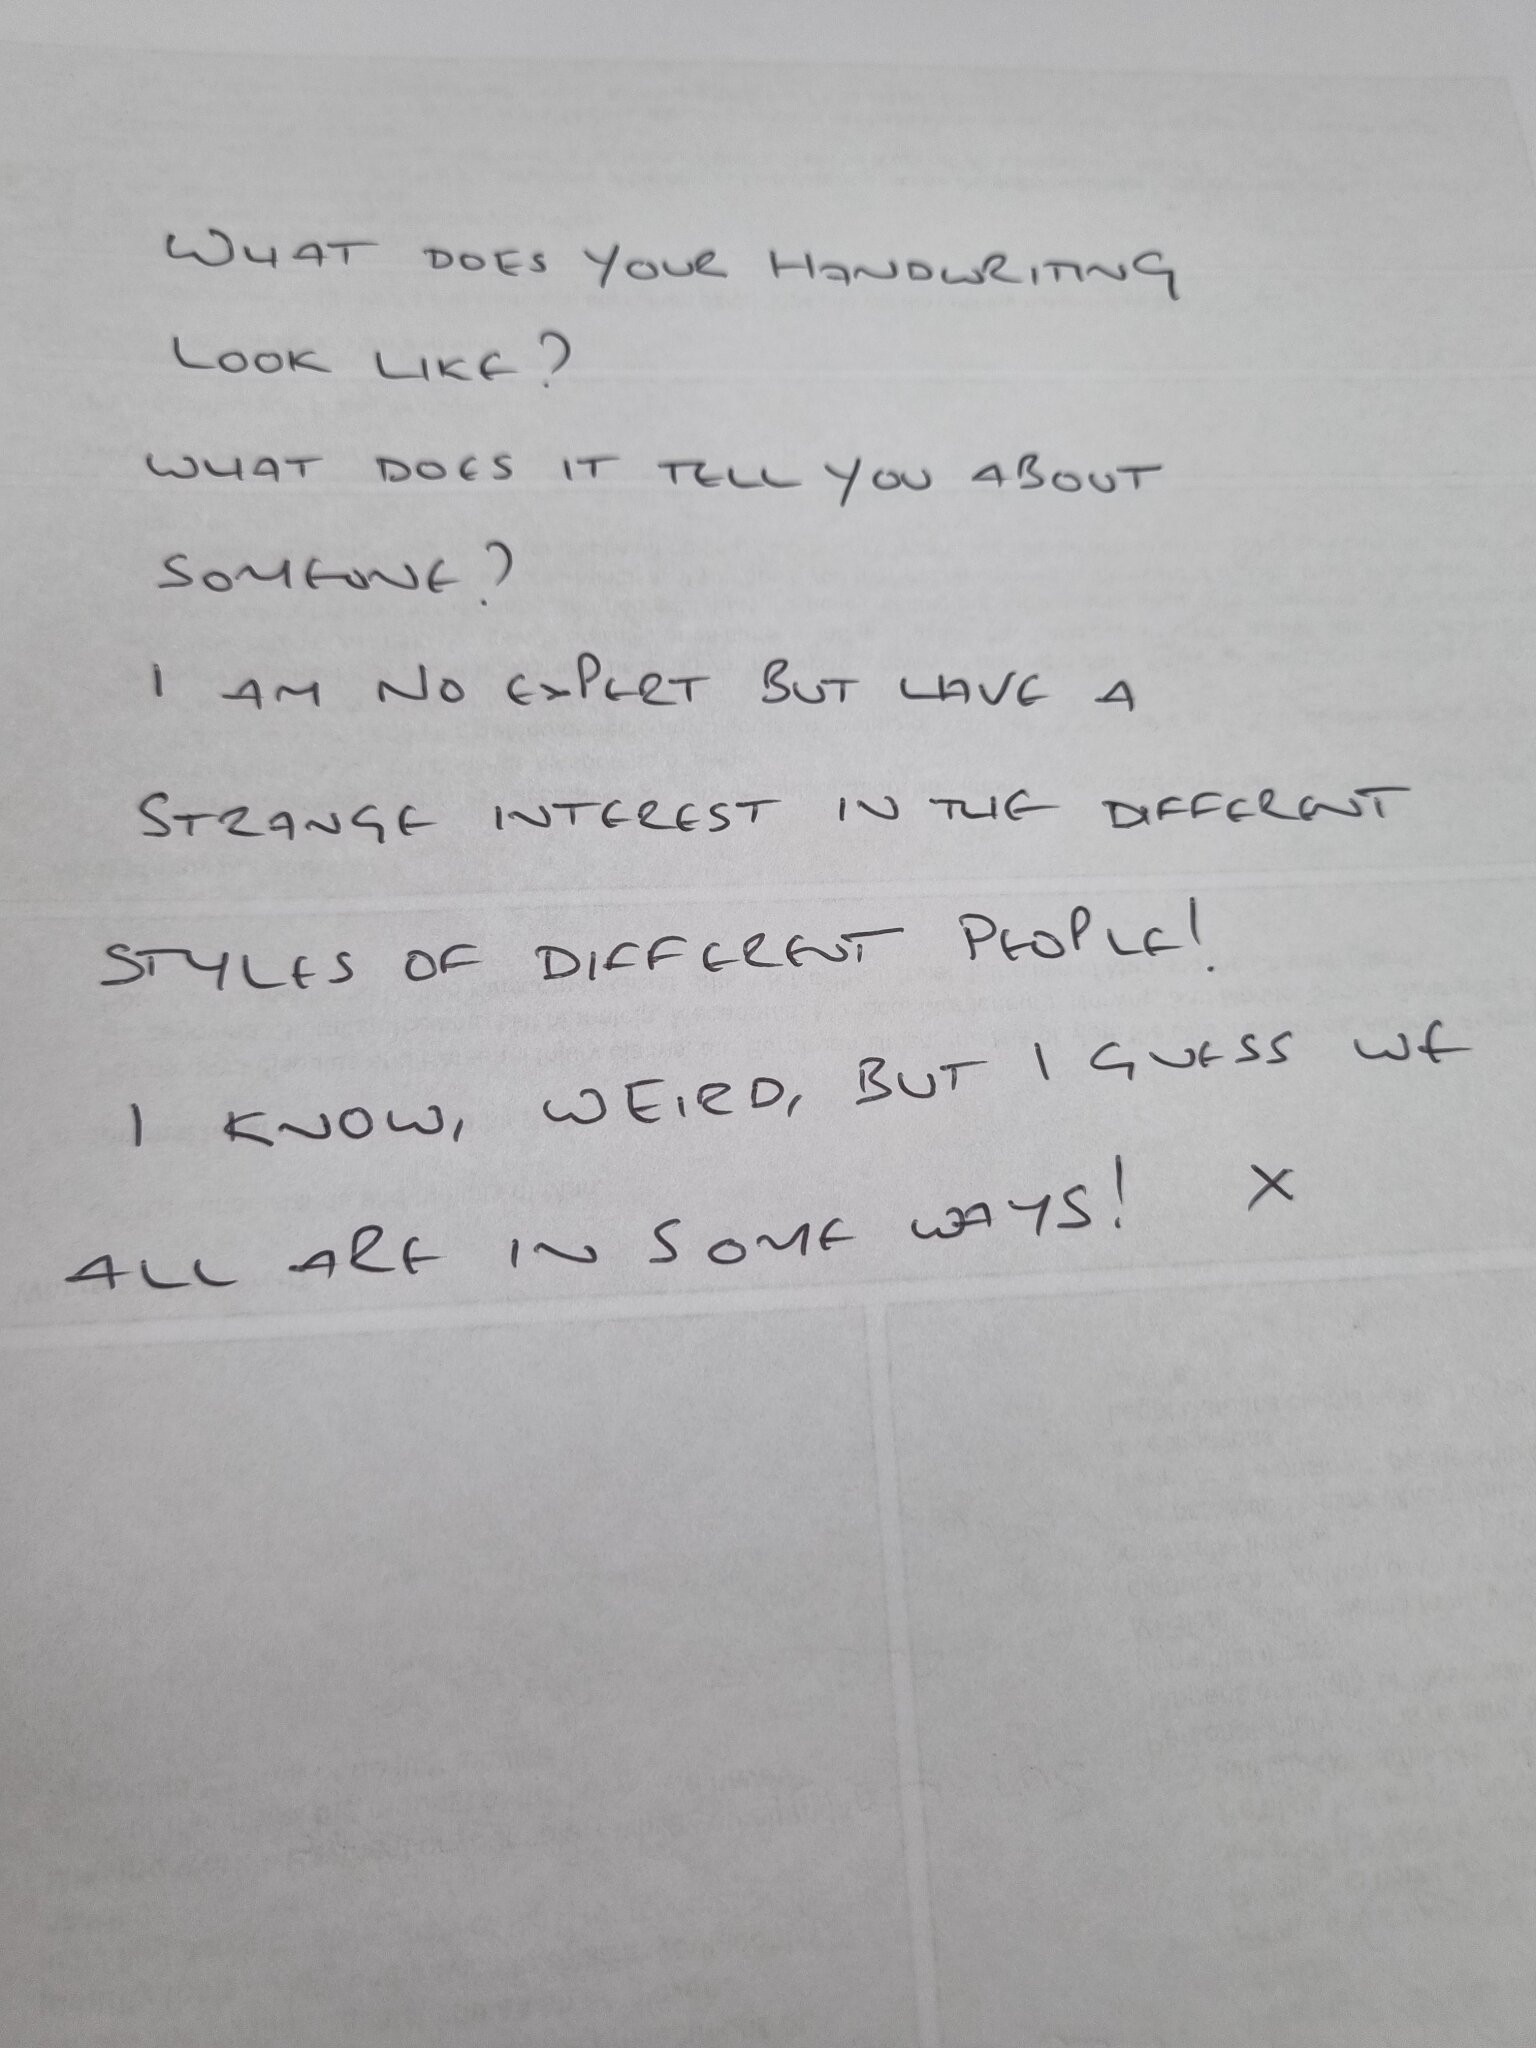 WHAT DOES YOUR HANDWRITING
LOOK LIKE?
WHAT DOES IT TELL YOU ABOUT
SOMEONE?
I AM NO EXPERT BUT HAVE A
STRANGE INTEREST IN THE DIFFERENT
STYLES OF DIFFERENT PEOPLE!
I KNOW, WEIRD, BUT I GUESS WE
ALL ARE IN SOME WAYS! X